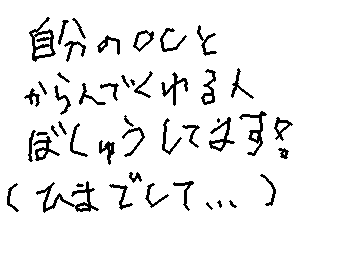 自分のOCと
からんでくれる人
ぼしゅうしてます!
(ひまでして...)